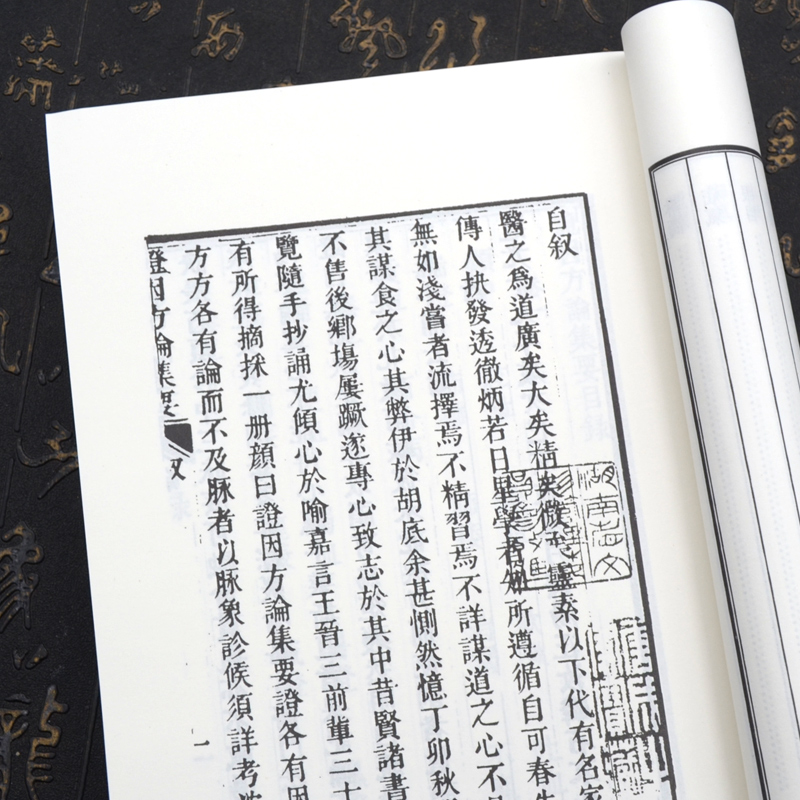 自叙
醫之為道廣矣大矣精矣微矣靈素以下代有名家
傳人抉發透徹炳若日星學者如所遵循自可春生
無如淺嘗者流擇焉不精習焉不詳謀道之心不
其謀食之心其弊伊於胡底余甚惻然憶丁卯秋
不售後鄉場屢蹶遂專心致志於其中昔賢諸書
覽隨手抄誦尤傾心於喻嘉言王晉三前輩三
有所得摘採一册顏曰證因方論集要證各有因
方方各有論而不及脉者以脉象診候須詳考
證因方論集要
叙
一
湖南
文